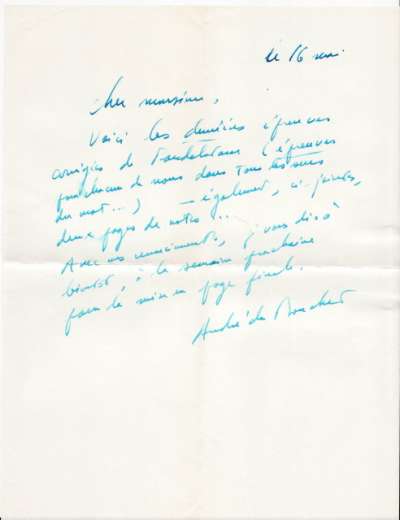 le 16 mai.
Cher monsieur,
Voici les dernières épreuves
corrigées de (épreuves
pour chacun de nous dans tous les sens
du mot...) — également, ci-jointes,
deux pages de notes...
Avec mes remerciements, je vous dis à
bientôt, à la semaine prochaine
pour la mise en page finale.
André du Bouchet